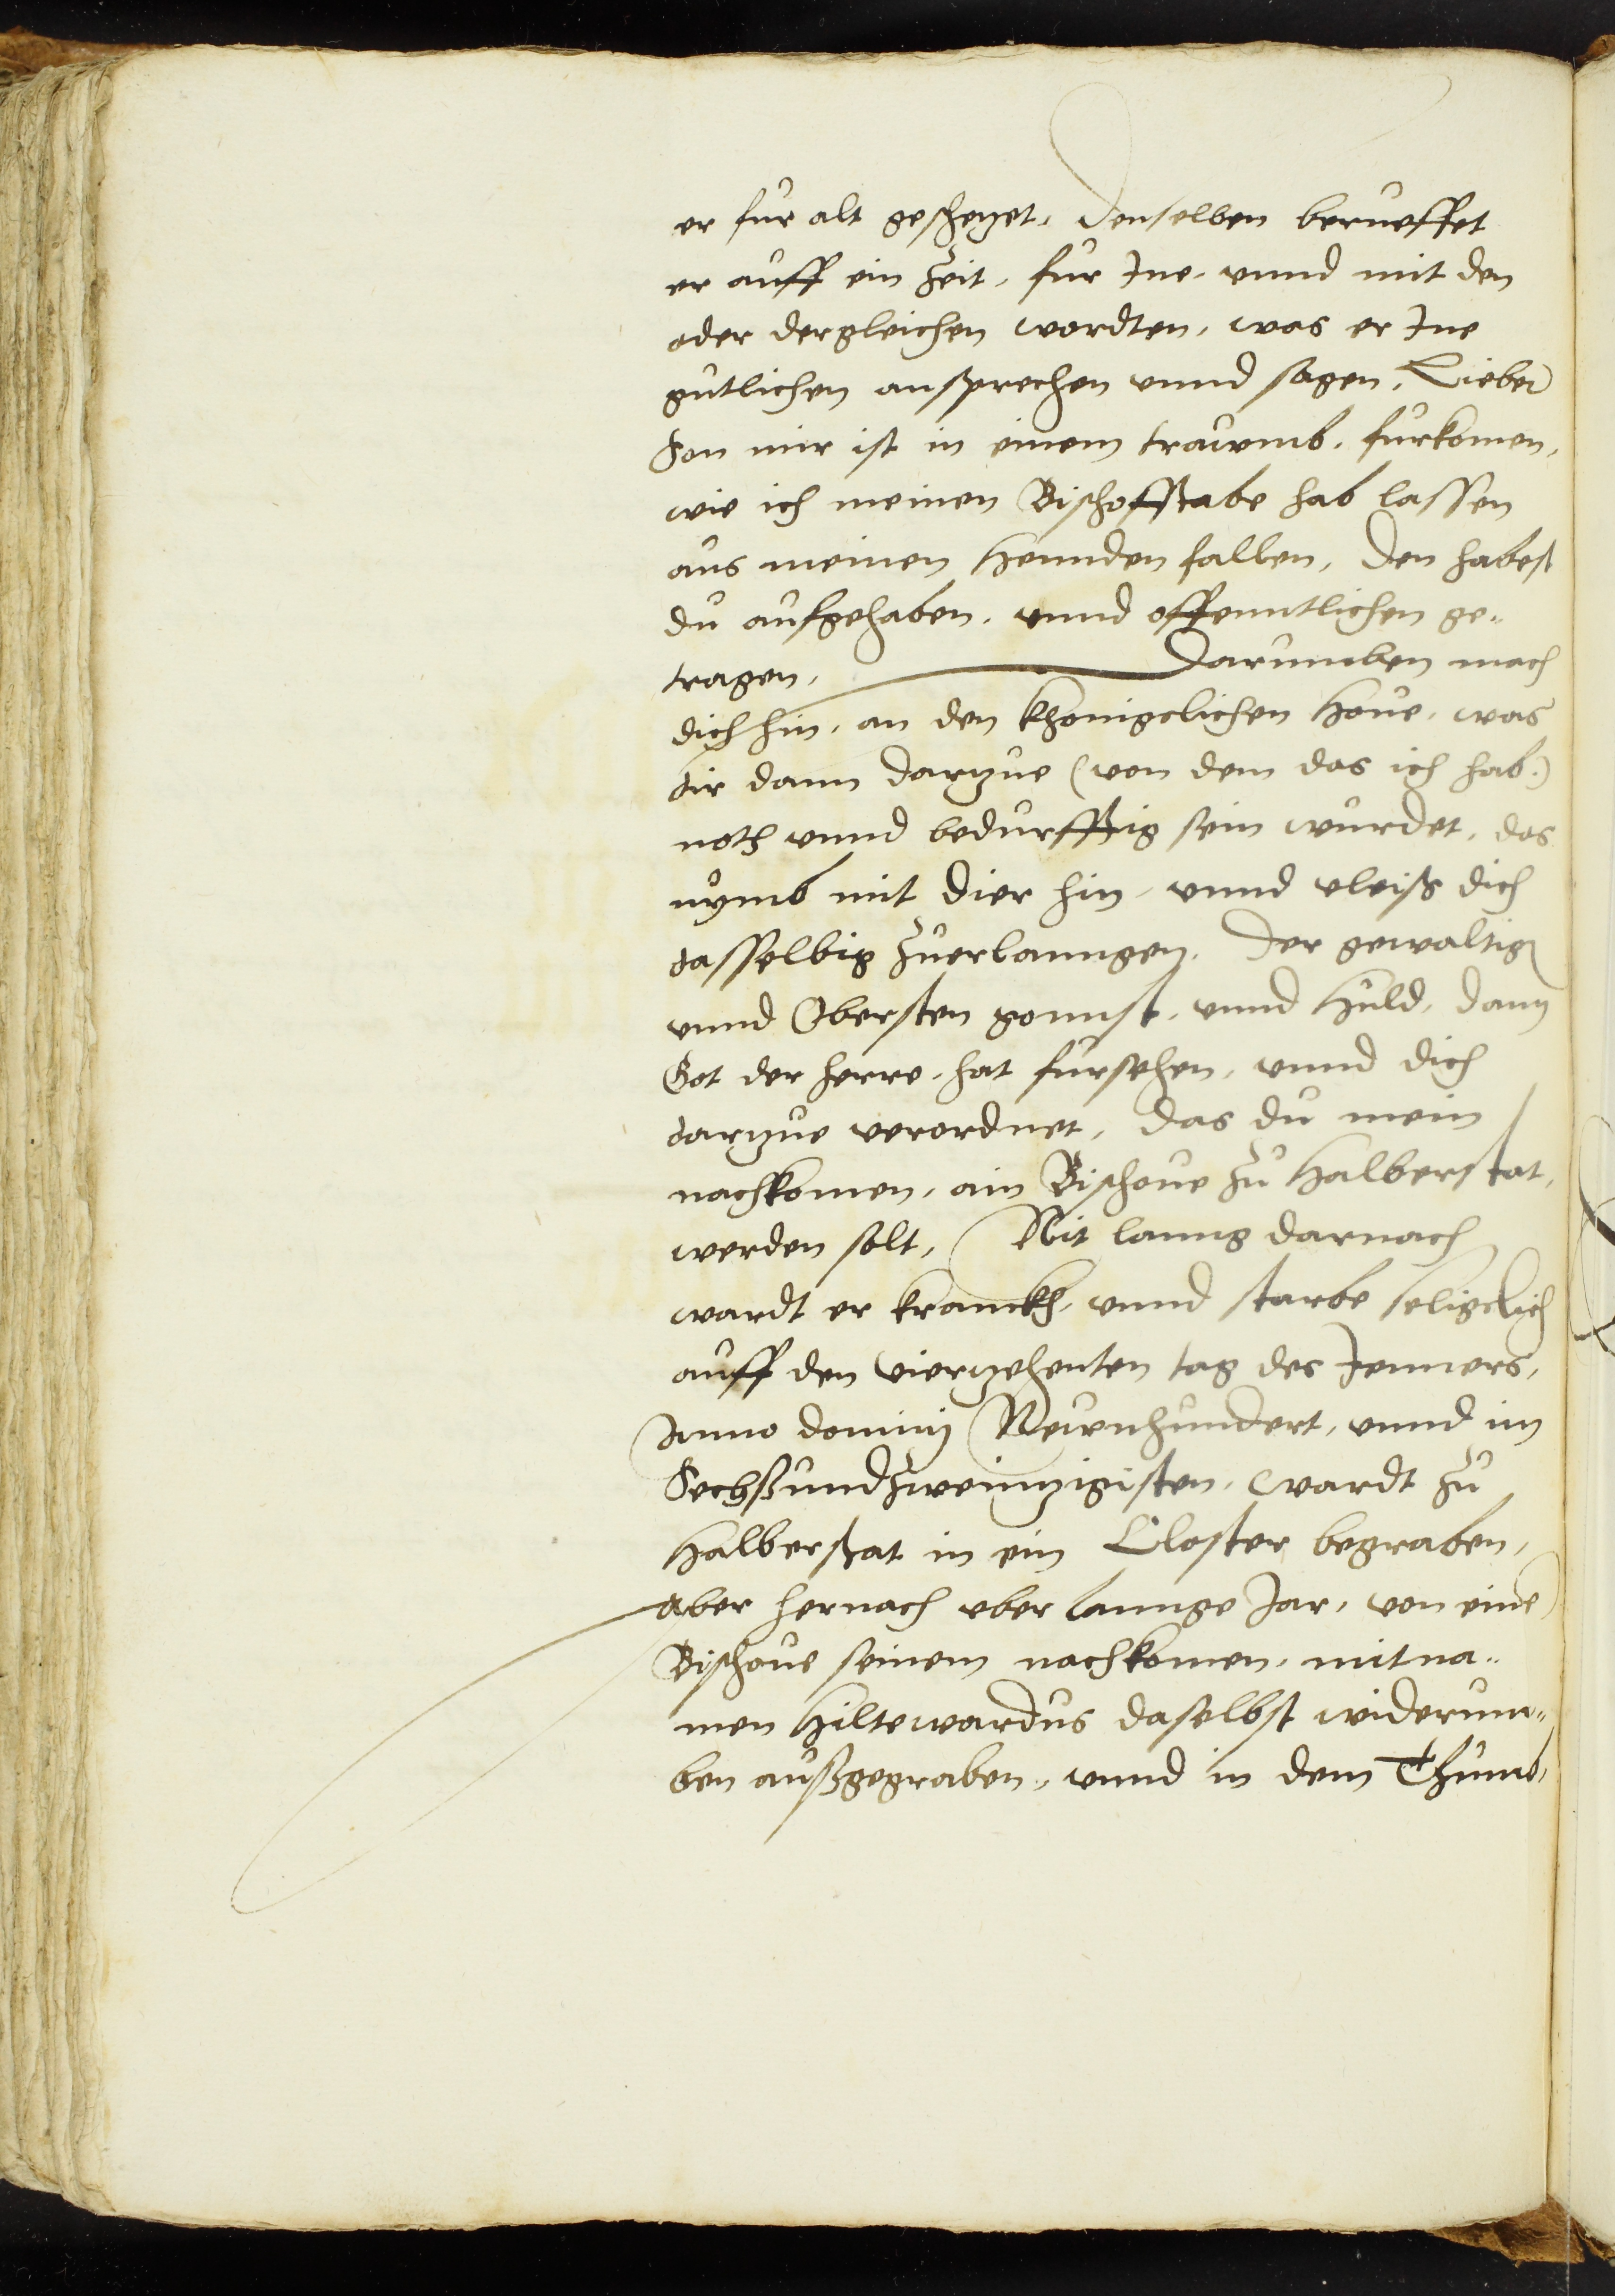 er fur alt geschezet, denselben berueffet
er auff ein Zeit, fur Ine, vnnd mit den
oder dergleichen wordten, was er Ine
gutlichen ansprechen vnnd sagen, Lieber
Son mir ist in einem trawmb, furkomen,
wie ich meinen Bischoffstabe hab lassen
aus meinen Hennden fallen, den habest
du aufgehaben, vnnd offenntlichen ge„
tragen, Darumben mach
dich hin, an den khönigclichen Houe, was
dir dann darzue (von dem das ich hab)
noth vnnd bedurfftig sein wurdet, das
nymb mit dier hin, vnnd vleiß dich
dasselbig zuerlanngen, der gewaltig
vnnd Obersten gonnst, vnnd Huld, dann
Got der herre, hat fursehen, vnnd dich
darzue verordnet, das du mein
nachkomen, ain Bischoue zu Halberstat,
werden solt, Nit lanng darnach
wardt er kranckh, vnnd starbe seligclich
auff den vierzehenten tag des Jenners,
Anno dominj Newnhundert, vnnd im
Sechßundzweinzigisten, wardt zu
Halberstat in ein Closter begraben,
aber hernach vber lannge Jar, von eine
Bischoue seinem nachkomen, mit na„
men Hiltewardus daselbst widerum„
ben außgegraben, vnnd in dem Thumb,